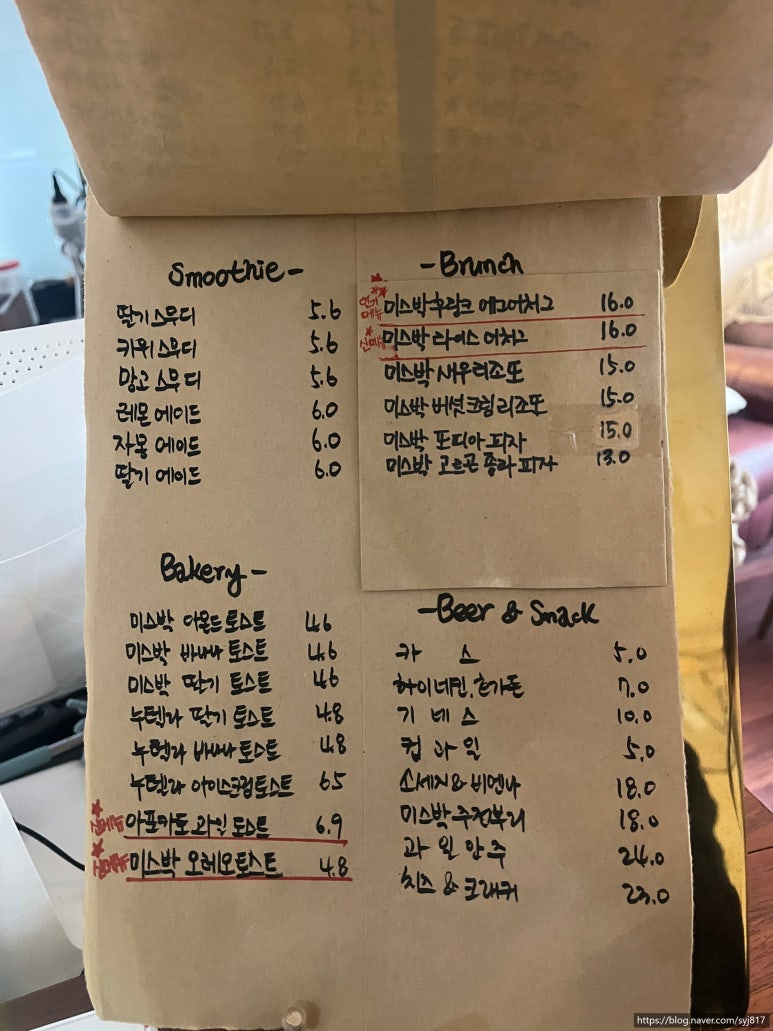 Smoothie -
딸기 스무디 5.6
키위 스무디 5.6
망고 스무디 5.6
레몬 에이드 6.0
자몽 에이드 6.0
딸기 에이드 6.0
Bakery -
미스박 아몬드 토스트 4.6
미스박 바나나 토스트 4.6
미스박 딸기 토스트 4.6
누텔라 딸기 토스트 4.8
누텔라 바나나 토스트 4.8
누텔라 아이스크림 토스트 6.5
신메뉴 아포카도 과일 토스트 6.9
신메뉴 미스박 오레오 토스트 4.8
- Brunch
인기메뉴 미스박 후랑크 에그어처구 16.0
신메뉴 미스박 라이스 어처구 16.0
미스박 새우 리조또 15.0
미스박 버섯크림 리조또 15.0
미스박 또띠아 피자 15.0
미스박 고르곤 졸라 피자 13.0
- Beer & Snack
카 스 5.0
하이네켄, 호가든 7.0
기 네 스 10.0
컵 과 일 5.0
소세지 & 비엔나 18.0
미스박 주전부리 18.0
과 일 안 주 24.0
치즈 & 크래커 23.0
https://blog.naver.com/syj817